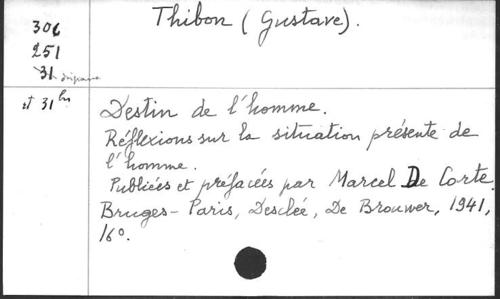 Thibon (Gustave).
306
251
31
et 31 bis
Destin de l'homme.
Réflexions sur la situation présente de
l'homme.
Publiées et préfacées par Marcel De Corte.
Bruges-Paris, Desclée, De Brouwer, 1941,
16º.